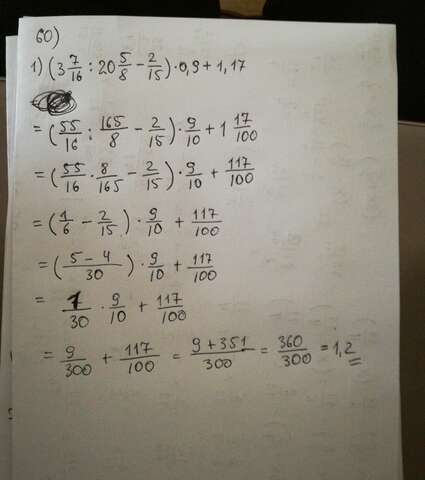 60)
1) (3 7/16 : 20 5/8 - 2/15) · 0,9 + 1,17
= (55/16 : 165/8 - 2/15) · 9/10 + 1 17/100
= (55/16 · 8/165 - 2/15) · 9/10 + 117/100
= (1/6 - 2/15) · 9/10 + 117/100
= (5 - 4/30) · 9/10 + 117/100
= 1/30 · 9/10 + 117/100
= 9/300 + 117/100 = 9 + 351/300 = 360/300 = 1,2